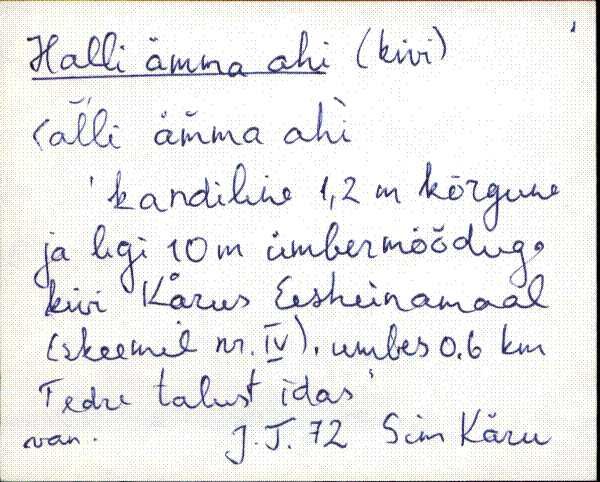 Halli ämma ahi (kivi)
‹alli ämma ahi
'kandiline 1,2 m kõrgune
ja ligi 10 m ümbermõõduga
kivi Kärus Eesheinamaal
(skeemil nr. IV), umbes 0,6 km
Tedre talust idas'
van. J. T. 72 Sim Käru